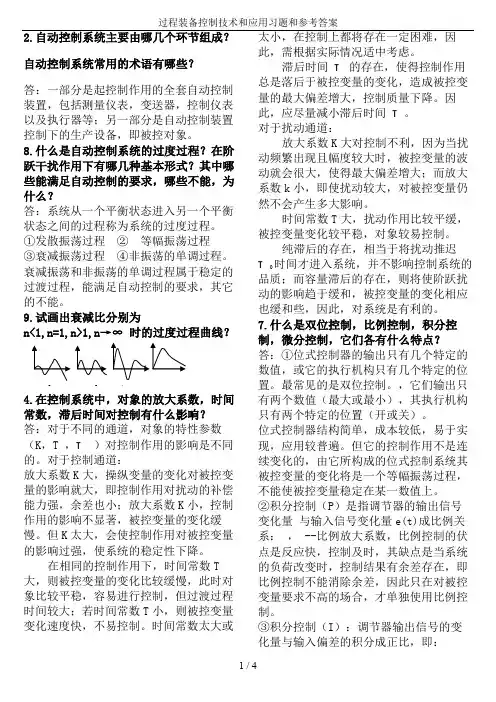 过程装备控制技术和应用习题和参考答案
2.自动控制系统主要由哪几个环节组成?
自动控制系统常用的术语有哪些?
答：一部分是起控制作用的全套自动控制
装置，包括测量仪表，变送器，控制仪表
以及执行器等；另一部分是自动控制装置
控制下的生产设备，即被控对象。
8.什么是自动控制系统的过度过程？在阶
跃干扰作用下有哪几种基本形式？其中哪
些能满足自动控制的要求，哪些不能，为
什么?
答：系统从一个平衡状态进入另一个平衡
状态之间的过程称为系统的过度过程。
①发散振荡过程 ② 等幅振荡过程
③衰减振荡过程 ④非振荡的单调过程。
衰减振荡和非振荡的单调过程属于稳定的
过渡过程，能满足自动控制的要求，其它
的不能。
9.试画出衰减比分别为
n<1,n=1,n>1,n→∞ 时的过度过程曲线?
4.在控制系统中，对象的放大系数，时间
常数，滞后时间对控制有什么影响?
答：对于不同的通道，对象的特性参数
（K，T ，τ ）对控制作用的影响是不同
的。对于控制通道：
放大系数K大，操纵变量的变化对被控变
量的影响就大，即控制作用对扰动的补偿
能力强，余差也小；放大系数K小，控制
作用的影响不显著，被控变量的变化缓
慢。但K太大，会使控制作用对被控变量
的影响过强，使系统的稳定性下降。
在相同的控制作用下，时间常数T
大，则被控变量的变化比较缓慢，此时对
象比较平稳，容易进行控制，但过渡过程
时间较大；若时间常数T小，则被控变量
变化速度快，不易控制。时间常数太大或
太小，在控制上都将存在一定困难，因
此，需根据实际情况适中考虑。
滞后时间 τ 的存在，使得控制作用
总是落后于被控变量的变化，造成被控变
量的最大偏差增大，控制质量下降。因
此，应尽量减小滞后时间 τ 。
对于扰动通道：
放大系数K大对控制不利，因为当扰
动频繁出现且幅度较大时，被控变量的波
动就会很大，使得最大偏差增大；而放大
系数k小，即使扰动较大，对被控变量仍
然不会产生多大影响。
时间常数T大，扰动作用比较平缓，
被控变量变化较平稳，对象较易控制。
纯滞后的存在，相当于将扰动推迟
τ0时间才进入系统，并不影响控制系统的
品质；而容量滞后的存在，则将使阶跃扰
动的影响趋于缓和，被控变量的变化相应
也缓和些，因此，对系统是有利的。
7.什么是双位控制，比例控制，积分控
制，微分控制，它们各有什么特点?
答：①位式控制器的输出只有几个特定的
数值，或它的执行机构只有几个特定的位
置。最常见的是双位控制。，它们输出只
有两个数值（最大或最小），其执行机构
只有两个特定的位置（开或关）。
位式控制器结构简单，成本较低，易于实
现，应用较普遍。但它的控制作用不是连
续变化的，由它所构成的位式控制系统其
被控变量的变化将是一个等幅振荡过程，
不能使被控变量稳定在某一数值上。
②积分控制（P）是指调节器的输出信号
变化量 与输入信号变化量e(t)成比例关
系； ， --比例放大系数，比例控制的优
点是反应快，控制及时，其缺点是当系统
的负荷改变时，控制结果有余差存在，即
比例控制不能消除余差，因此只在对被控
变量要求不高的场合，才单独使用比例控
制。
③积分控制（I）：调节器输出信号的变
化量与输入偏差的积分成正比，即：
1 / 4